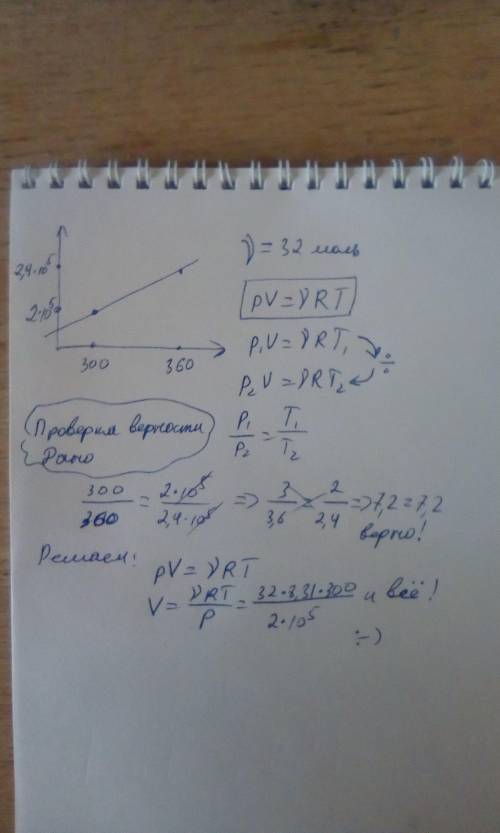 2,4·10⁵
2·10⁵
300 360
ν = 32 моль
pV = νRT
P₁V = νRT₁
÷
P₂V = νRT₂
P₁/P₂ = T₁/T₂
Проверка верности
Дано
300/360 = 2·10⁵/2,4·10⁵ => 3/3,6 = 2/2,4 => 7,2 = 7,2
верно!
Решаем:
pV = νRT
V = νRT/P = 32·8,31·300/2·10⁵ и всё!
÷)